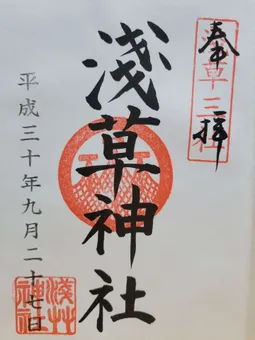 奉拝
浅草三社
淺草神社
平成三十年九月二十七日
淺草神社